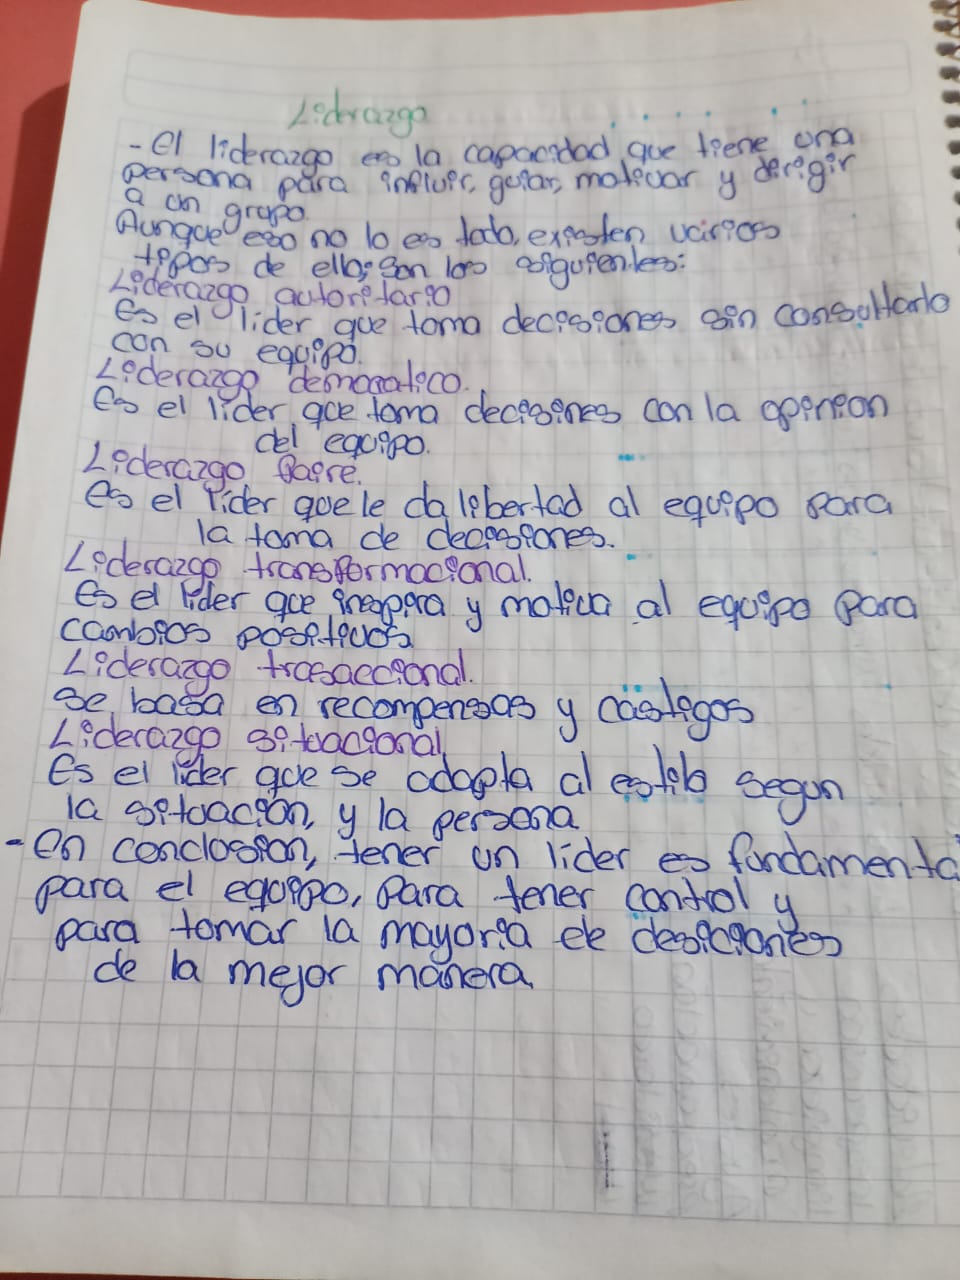 Liderazgo
- El liderazgo es la capacidad que tiene una
persona para influir, guiar, motivar y dirigir
a un grupo.
Aunque eso no lo es todo, existen varios
tipos de ello; son los siguientes:
Liderazgo autoritario
Es el lider que toma decisiones sin consultarlo
con su equipo.
Liderazgo democratico.
Es el lider que toma decisines con la opinion
del equipo.
Liderazgo faire.
Es el lider que le da libertad al equipo para
la toma de decisiones.
Liderazgo transformacional.
Es el lider que inspira y motiva al equipo para
cambios positivos.
Liderazgo trasaccional.
se basa en recompensas y castigos
Liderazgo situacional
Es el lider que se adapta al estilo segun
la situación, y la persona
- En conclusion, tener un lider es fundamental
para el equipo, para tener control y
para tomar la mayoria de desiciones
de la mejor manera.